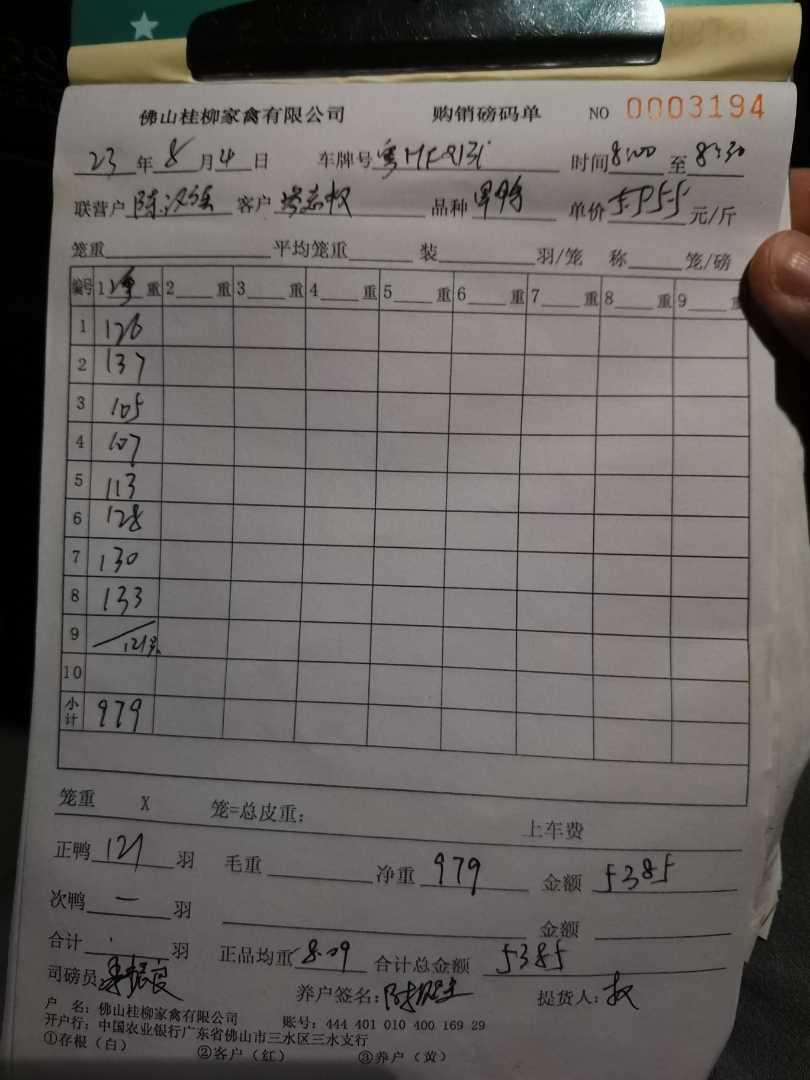 佛山桂柳家禽有限公司 购销磅码单 NO 0003194
23年8月4日 车牌号粤 时间8:00至8:30
联营户陈汉强 客户 权 品种 单价 元/斤
笼重 平均笼重 装 羽/笼 称 笼/磅
编号 1净重 2 重 3 重 4 重 5 重 6 重 7 重 8 重 9 重
1 126
2 137
3 105
4 107
5 113
6 128
7 130
8 133
9 121只
10
小计 979
笼重 X 笼=总皮重: 上车费
正鸭121羽 毛重 净重979 金额5385
次鸭一羽 金额
合计 羽 正品均重8.09 合计总金额5385
司磅员 养户签名: 提货人:权
户 名: 佛山桂柳家禽有限公司 账号: 444 401 010 400 169 29
开户行: 中国农业银行广东省佛山市三水区三水支行
①存根(白) ②客户(红) ③养户(黄)